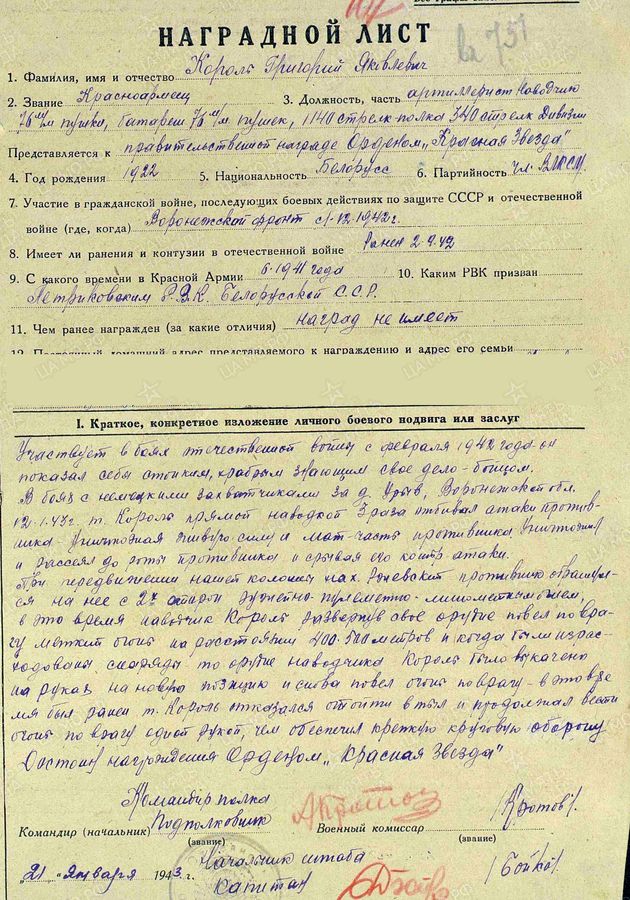 НАГРАДНОЙ ЛИСТ
1. Фамилия, имя и отчество Король Григорий Яковлевич
2. Звание Красноармеец 3. Должность, часть артиллерист наводчик
76 м/м пушки, батареи 76 м/м пушек, 1140 стрелк полка 340 стрелк Дивизии
Представляется к правительственной награде Орденом „Красная Звезда"
4. Год рождения 1922 5. Национальность Белорусс 6. Партийность чл. ВЛКСМ
7. Участие в гражданской войне, последующих боевых действиях по защите СССР и отечественной
войне (где, когда) Воронежский фронт с 1.12.1942г.
8. Имеет ли ранения и контузии в отечественной войне Ранен 2.9.42
9. С какого времени в Красной Армии 6.1941 года 10. Каким РВК призван
Петриковским Р.В.К. Белорусской С.С.Р.
11. Чем ранее награжден (за какие отличия) наград не имеет
12. Постоянный домашний адрес представляемого к награждению и адрес его семьи
I. Краткое, конкретное изложение личного боевого подвига или заслуг
Участвует в боях отечественной войны с февраля 1942 года он
показал себя стойким, храбрым знающим свое дело - бойцом.
В боях с немецкими захватчиками за д. Урыв, Воронежской обл.
12.1.43г. т. Король прямой наводкой 3 раза отбивал атаки против-
ника уничтожая живую силу и мат-часть противника уничтожил
и рассеял до роты противника и срывая его контр атаки.
При передвижении нашей колонны на х. противник обрушил-
ся на нее с 2х сторон ружейно-пулеметно-минометным огнем,
в это время наводчик Король развернув свое орудие повел по вра-
гу меткий огонь на расстоянии 400-500 метров и когда были израс-
ходованы снаряды то орудие наводчика Король было выкачено
на руках на новую позицию и снова повел огонь по врагу - в это вре
мя был ранен т. Король отказался отойти в тыл и продолжал вести
огонь по врагу одной рукой, чем обеспечил крепкую круговую оборону
Достоин награждения Орденом „Красная Звезда"
Командир полка
Командир (начальник) Подполковник Военный комиссар /Кротов/.
(звание) (звание)
Начальник штаба
„21" Января 1943 г. Капитан